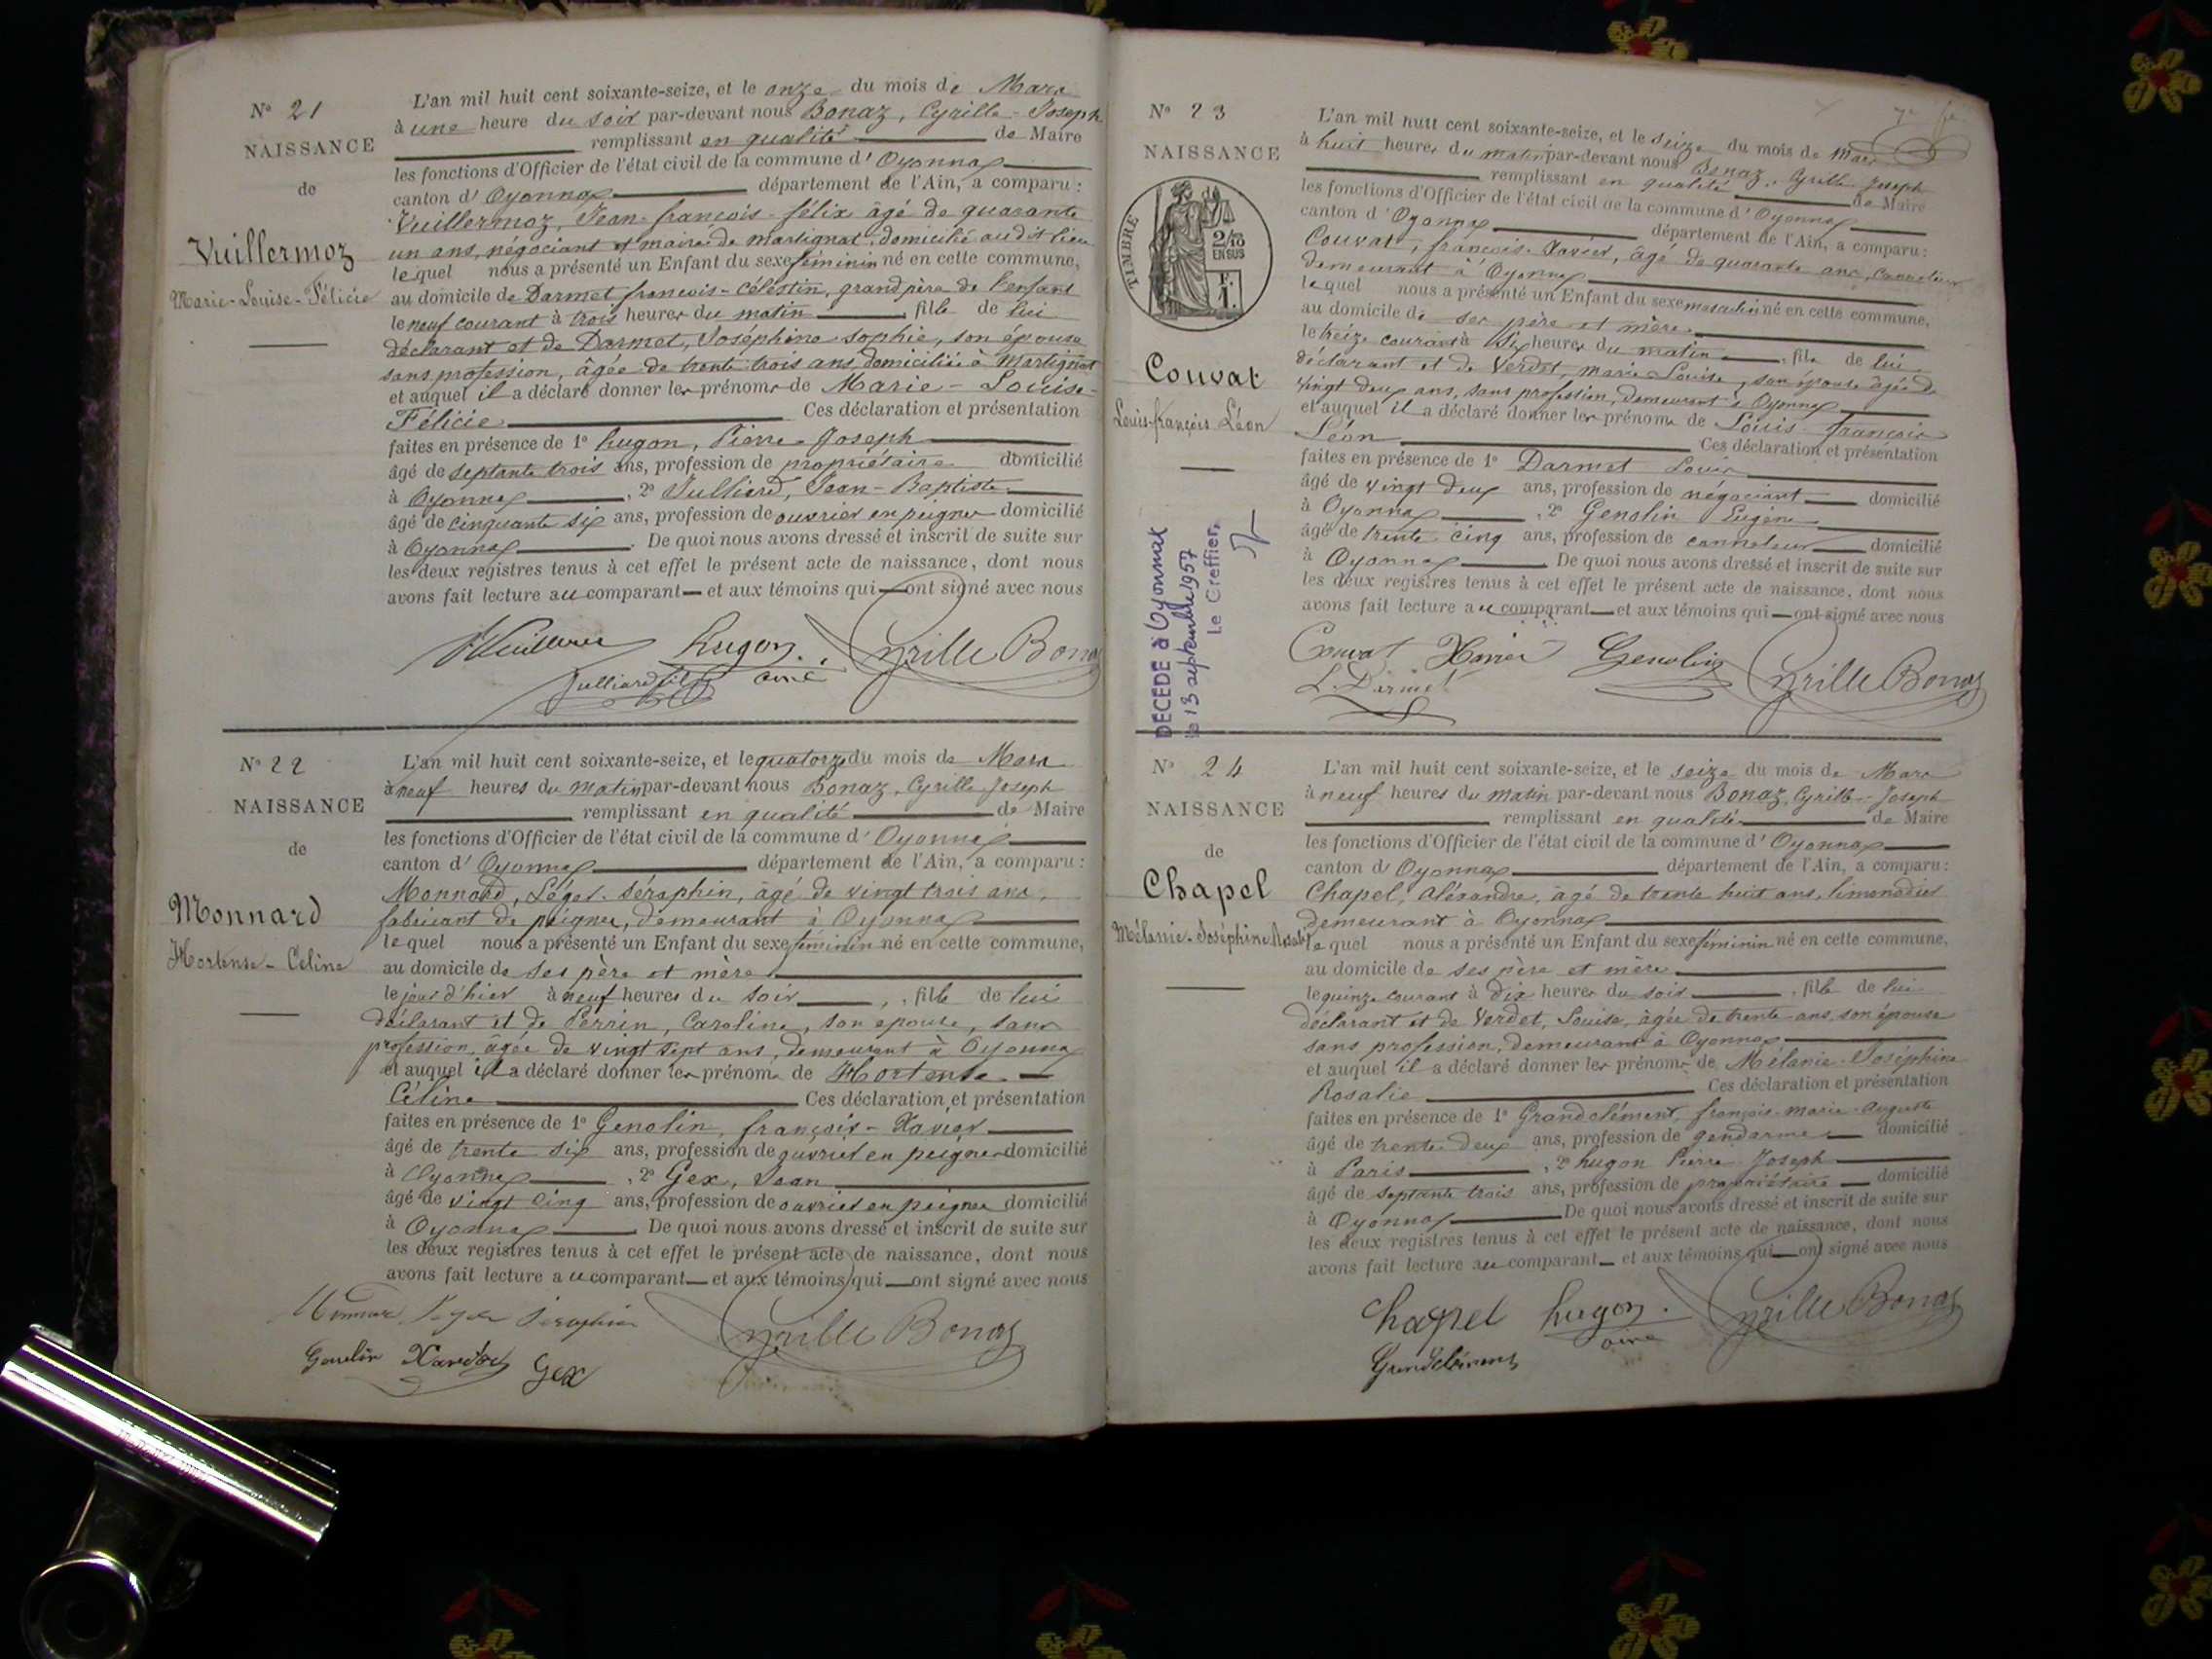 N° 21
NAISSANCE
de
Vuillermoz
Marie-Louise-Félicie
L'an mil huit cent soixante-seize, et le onze du mois de Mars
à une heure du soir par-devant nous Bonaz, Cyrille-Joseph
remplissant en qualité de Maire
les fonctions d'Officier de l'état civil de la commune d'Oyonnax
canton d'Oyonnax département de l'Ain, a comparu :
Vuillermoz, Jean-françois-félix âgé de quarante
un ans, négociant et maire de Martignat, domicilié audit lieu
lequel nous a présenté un Enfant du sexe féminin né en cette commune,
au domicile de Darmet françois-Célestin, grand père de l'enfant
le neuf courant à trois heures du matin, fille de lui
déclarant et de Darmet, Joséphine Sophie, son épouse
sans profession, âgée de trente trois ans, domiciliée à Martignat
et auquel il a déclaré donner les prénoms de Marie-Louise-
Félicie Ces déclaration et présentation
faites en présence de 1° hugon, Pierre-Joseph
âgé de septante trois ans, profession de propriétaire domicilié
à Oyonnax, 2° Julliard, Jean-Baptiste
âgé de cinquante six ans, profession de ouvrier en peignes domicilié
à Oyonnax. De quoi nous avons dressé et inscrit de suite sur
les deux registres tenus à cet effet le présent acte de naissance, dont nous
avons fait lecture au comparant et aux témoins qui ont signé avec nous
hugon Cyrille Bonaz
Julliard ainé
N° 22
NAISSANCE
de
Monnard
Hortense-Céline
L'an mil huit cent soixante-seize, et le quatorze du mois de Mars
à neuf heures du matin par-devant nous Bonaz, Cyrille Joseph
remplissant en qualité de Maire
les fonctions d'Officier de l'état civil de la commune d'Oyonnax
canton d'Oyonnax département de l'Ain, a comparu :
Monnard, Léger-Séraphin, âgé de vingt trois ans,
fabricant de peignes, demeurant à Oyonnax
lequel nous a présenté un Enfant du sexe féminin né en cette commune,
au domicile de ses père et mère
le jour d'hier à neuf heures du soir, fille de lui
déclarant et de Perrin, Caroline, son épouse, sans
profession, âgée de vingt sept ans, demeurant à Oyonnax
et auquel il a déclaré donner les prénoms de Hortense
Céline Ces déclaration et présentation
faites en présence de 1° Genolin, françois-Xavier
âgé de trente six ans, profession de ouvrier en peignes domicilié
à Oyonnax, 2° Gex, Jean
âgé de vingt cinq ans, profession de ouvrier en peignes domicilié
à Oyonnax De quoi nous avons dressé et inscrit de suite sur
les deux registres tenus à cet effet le présent acte de naissance, dont nous
avons fait lecture au comparant et aux témoins qui ont signé avec nous
Cyrille Bonaz
Genolin Gex
N° 23
NAISSANCE
TIMBRE
2/10
EN SUS
F.
1.
Couvat
Louis-françois Léon
DÉCÉDÉ à Oyonnax
le 13 septembre 1957
Le Greffier,
L'an mil huit cent soixante-seize, et le seize du mois de Mars
à huit heures du matin par-devant nous Bonaz, Cyrille Joseph
remplissant en qualité de Maire
les fonctions d'Officier de l'état civil de la commune d'Oyonnax
canton d'Oyonnax département de l'Ain, a comparu :
Couvat, françois-Xavier, âgé de quarante ans, canneleur
demeurant à Oyonnax
lequel nous a présenté un Enfant du sexe masculin né en cette commune,
au domicile de ses père et mère
le treize courant à six heures du matin, fils de lui
déclarant et de Verdet, Marie Louise, son épouse âgée de
vingt deux ans, sans profession, demeurant à Oyonnax
et auquel il a déclaré donner les prénoms de Louis françois
Léon Ces déclaration et présentation
faites en présence de 1° Darmet Louis
âgé de vingt deux ans, profession de négociant domicilié
à Oyonnax, 2° Genolin Eugène
âgé de trente cinq ans, profession de canneleur domicilié
à Oyonnax De quoi nous avons dressé et inscrit de suite sur
les deux registres tenus à cet effet le présent acte de naissance, dont nous
avons fait lecture au comparant et aux témoins qui ont signé avec nous
Couvat Xavier Genolin Cyrille Bonaz
N° 24
NAISSANCE
de
Chapel
Mélanie-Joséphine Rosalie
L'an mil huit cent soixante-seize, et le seize du mois de Mars
à neuf heures du matin par-devant nous Bonaz, Cyrille-Joseph
remplissant en qualité de Maire
les fonctions d'Officier de l'état civil de la commune d'Oyonnax
canton d'Oyonnax département de l'Ain, a comparu :
Chapel, Alexandre, âgé de trente huit ans, limonadier
demeurant à Oyonnax
lequel nous a présenté un Enfant du sexe féminin né en cette commune,
au domicile de ses père et mère
le quinze courant à dix heures du soir, fille de lui
déclarant et de Verdet, Louise, âgée de trente ans, son épouse
sans profession, demeurant à Oyonnax
et auquel il a déclaré donner les prénoms de Mélanie-Joséphine
Rosalie Ces déclaration et présentation
faites en présence de 1° Grandclément, françois-marie-auguste
âgé de trente deux ans, profession de gendarme domicilié
à Paris, 2° hugon Pierre Joseph
âgé de septante trois ans, profession de propriétaire domicilié
à Oyonnax De quoi nous avons dressé et inscrit de suite sur
les deux registres tenus à cet effet le présent acte de naissance, dont nous
avons fait lecture au comparant et aux témoins qui ont signé avec nous
Chapel hugon ainé Cyrille Bonaz
Grandclément